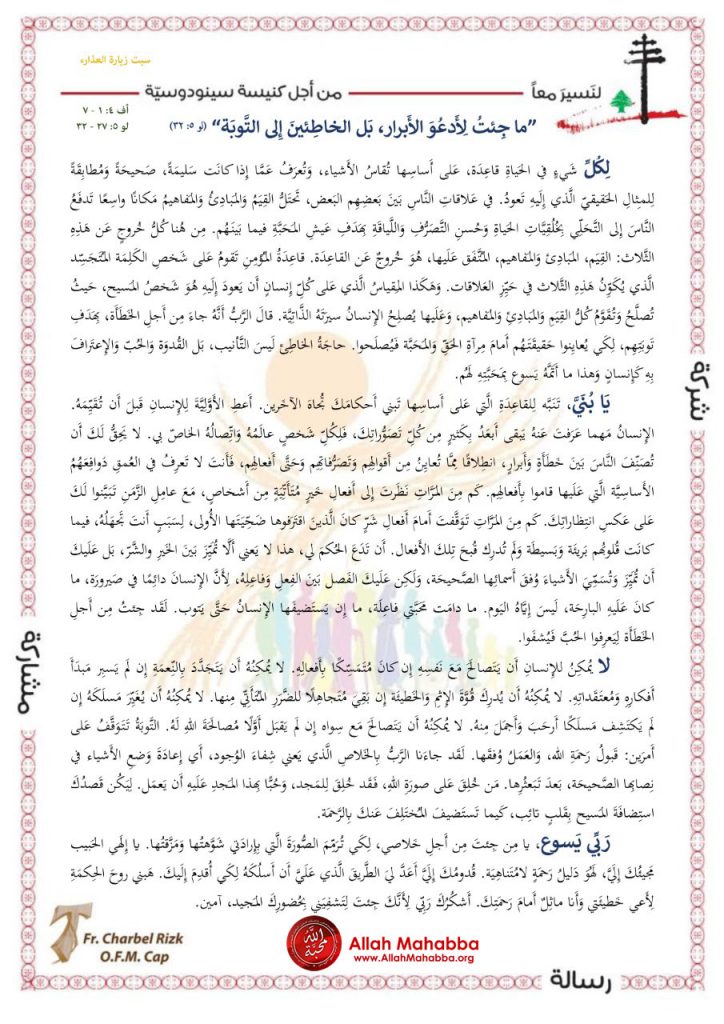 سبت زيارة العذراء
لنَسيرَ معاً
من أجل كنيسة سينودوسيّة
أف ٤: ١ - ٧
لو ٥: ٢٧ - ٣٢
”ما جِئتُ لِأَدعُوَ الأَبرار، بَل الخاطِئينَ إِلى التَّوبَة“ (لو ٥: ٣٢)
لِكُلِّ شَيءٍ في الحَياةِ قاعِدَة، عَلى أَساسِها تُقاسُ الأَشياء، وَتُعرَفُ عَمَّا إِذا كانَت سَليمَةً، صَحيحَةً وَمُطابِقَةً
لِلمِثالِ الحَقيقيِّ الَّذي إِلَيهِ تَعودُ. في عَلاقاتِ النَّاسِ بَينَ بَعضِهِم البَعض، تَحتَلُّ القِيَمُ وَالمَبادِئُ وَالمَفاهيم مَكانًا واسِعًا تَدفَعُ
النَّاسَ إِلى التَّحَلّي بِخُلُقِيَّاتِ الحَياةِ وَحُسنِ التَّصَرُّفِ وَاللَّياقَةِ بِهَدَفِ عَيشِ المَحَبَّةِ فيما بَينَهُم. مِن هُنا كُلُّ خُروجٍ عَن هَذِهِ
الثَّلاث: القِيَم، المَبادِئ وَالمَفاهيم، المُتَّفَق عَلَيها، هُوَ خُروجٌ عَن القاعِدَة. قاعِدَةُ المُؤمِنِ تَقومُ عَلى شَخصِ الكَلِمَة المُتَجَسِّد
الَّذي يُكَوِّنُ هَذِهِ الثَّلاث في حَيِّزِ العَلاقات. وَهَكَذا المِقياسُ الَّذي عَلى كُلِّ إِنسانٍ أَن يَعودَ إِلَيهِ هُوَ شَخصُ المَسيح، حَيثُ
تُصلَّحُ وَتُقَوَّمُ كُلُّ القِيَمِ وَالمَبادِئِ وَالمَفاهيم، وَعَلَيها يُصلِحُ الإِنسانُ سيرَتَهُ الذَّاتِيَّة. قالَ الرَّبُّ أَنَّهُ جاءَ مِن أَجلِ الخَطَأَة، بِهَدَفِ
تَوبَتِهِم، لِكَي يُعايِنوا حَقيقَتَهُم أَمامَ مِرآةِ الحَقِّ وَالمَحَبَّة فَيُصلَحوا. حاجَةُ الخاطِئِ لَيسَ التَّأنيب، بَل القُدوَة وَالحُبّ وَالإِعتِرافَ
بِهِ كَإِنسانٍ وَهذا ما أَتَمَّهُ يَسوع بِمَحَبَّتِهِ لَهُم.
يَا بُنَيَّ، تَنَبَّه لِلقاعِدَةِ الَّتي عَلى أَساسِها تَبني أَحكامَكَ تُجاهَ الآخَرين. أَعطِ الأَوَّلِيَّةَ لِلإِنسانِ قَبلَ أَن تُقَيِّمَهُ.
الإِنسانُ مَهما عَرَفتَ عَنهُ يَبقى أَبعَدُ بِكَثيرٍ مِن كُلِّ تَصَوُّراتِكَ، فَلِكُلِّ شَخصٍ عالَمُهُ وَاتِّصالُهُ الخاصّ بي. لا يَحِقُّ لَكَ أَن
تُصَنِّفَ النَّاسَ بَينَ خَطَأَةٍ وَأَبرارٍ، انطِلاقًا مِمَّا تُعايِنُ مِن أَقوالِهِم وَتَصَرُّفاتِهِم وَحَتَّى أَفعالِهِم، فَأَنتَ لا تَعرِفُ في العُمقِ دَوافِعَهُم
الأَساسِيَّة الَّتي عَلَيها قاموا بِأَفعالِهِم. كَم مِنَ المَرَّاتِ نَظَرتَ إِلى أَفعالِ خَيرٍ مُتَأَتِّيَةٍ مِن أَشخاصٍ، مَعَ عامِلِ الزَّمَنِ تَبَيَّنوا لَكَ
عَلى عَكسِ انتِظاراتِكَ. كَم مِنَ المَرَّاتِ تَوَقَّفتَ أَمامَ أَفعالِ شَرٍّ كانَ الَّذينَ اقتَرَفوها ضَحِيَّتَها الأُولى، لِسَبَبٍ أَنتَ تَجهَلُهُ، فيما
كانَت قُلوبُهُم بَريئَة وَبَسيطَة وَلَم تُدرِك قُبحَ تِلكَ الأَفعال. أَن تَدَعَ الحُكمَ لي، هذا لا يَعني أَلَّا تُمَيِّزَ بَينَ الخَيرِ وَالشَّرّ، بَل عَلَيكَ
أَن تُمَيِّزَ وَتُسَمِّيَ الأَشياءَ وُفقَ أَسمائِها الصَّحيحَة، وَلَكِن عَلَيكَ الفَصل بَينَ الفِعلِ وَفاعِلِهِ، لِأَنَّ الإِنسانَ دائِمًا في صَيرورَة، ما
كانَ عَلَيهِ البارِحَة، لَيسَ إِيَّاهُ اليَوم. ما دامَت مَحَبَّتي فاعِلَة، ما إِن يَستَضيفُها الإِنسانُ حَتَّى يَتوب. لَقَد جِئتُ مِن أَجلِ
الخَطَأَة لِيَعرِفوا الحُبَّ فَيُشفَوا.
لا يُمكِنُ لِلإِنسانِ أَن يَتَصالَحَ مَعَ نَفسِهِ إِن كانَ مُتَمَسِّكًا بِأَفعالِهِ. لا يُمكِنُهُ أَن يَتَجَدَّدَ بِالنِّعمَةِ إِن لَم يَسبِر مَبدَأَ
أَفكارِهِ وَمُعتَقَداتِهِ. لا يُمكِنُهُ أَن يُدرِكَ قُوَّةَ الإِثمِ وَالخَطيئَة إِن بَقِيَ مُتَجاهِلًا لِلضَّرَرِ المُتَأَتّي مِنها. لا يُمكِنُهُ أَن يُغَيِّرَ مَسلَكَهُ إِن
لَم يَكتَشِف مَسلَكًا أَرحَبَ وَأَجمَلَ مِنهُ. لا يُمكِنُهُ أَن يَتَصالَحَ مَع سِواه إِن لَم يَقبَل أَوَّلًا مُصالَحَةَ اللهِ لَهُ. التَّوبَةُ تَتَوَقَّفُ عَلى
أَمرَين: قَبولُ رَحمَةِ الله، وَالعَمَلُ وُفقَها. لَقَد جاءَنا الرَّبُّ بِالخَلاصِ الَّذي يَعني شِفاءَ الوُجود، أَي إِعادَةَ وَضعِ الأَشياء في
نِصابِها الصَّحيحَة، بَعدَ تَبَعثُرِها. مَن خُلِقَ عَلى صورَةِ اللهِ، فَقَد خُلِقَ لِلمَجد، وَحُبًّا بِهذا المَجدِ عَلَيهِ أَن يَعمَل. لِيَكُن قَصدُكَ
استِضافَةَ المَسيح بِقَلبٍ تائِب، كَيما تَستَضيفَ المُختَلِفَ عَنكَ بِالرَّحمَة.
رَبّي يَسوع، يا مِن جِئتَ مِن أَجلِ خَلاصي، لِكَي تُرَمِّمَ الصُّورَةَ الَّتي بِإِرادَتي شَوَّهتُها وَمَزَّقتُها. يا إِلهي الحَبيب
مَجيئُكَ إِلَيَّ، لَهُوَ دَليلُ رَحمَةٍ لامُتَناهِيَة. قُدومُكَ إِلَيَّ أَعَدَّ لِيَ الطَّريقَ الَّذي عَلَيَّ أَن أَسلُكَهُ لِكَي أُقدِمَ إِلَيكَ. هَبني روحَ الحِكمَةِ
لِأَعي خَطيئَتي وَأَنا ماثِلٌ أَمامَ رَحمَتِكَ. أَشكُرُكَ رَبّي لِأَنَّكَ جِئتَ لِتَشفِيَني بِحُضورِكَ المَجيد، آمين.
شركة
مشاركة
رسالة
Fr. Charbel Rizk
O.F.M. Cap
الله محبة
Allah Mahabba
www.AllahMahabba.org